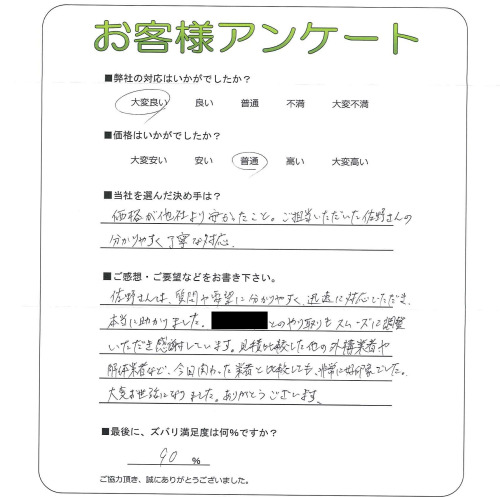 お客様アンケート
■弊社の対応はいかがでしたか？
大変良い 良い 普通 不満 大変不満
■価格はいかがでしたか？
大変安い 安い 普通 高い 大変高い
■当社を選んだ決め手は？
価格が他社より安かったこと。ご担当いただいた佐野さんの
分かりやすく丁寧な対応
■ご感想・ご要望などをお書き下さい。
佐野さんは、質問や要望に分かりやすく、迅速に対応いただき、
本当に助かりました。 とのやり取りもスムーズに調整
いただき感謝しています。見積比較した他の外構業者や
解体業者など、今回関わった業者と比較しても、非常に好印象でした。
大変お世話になりました。ありがとうございます。
■最後に、ズバリ満足度は何%ですか？
90 %
ご協力頂き、誠にありがとうございました。